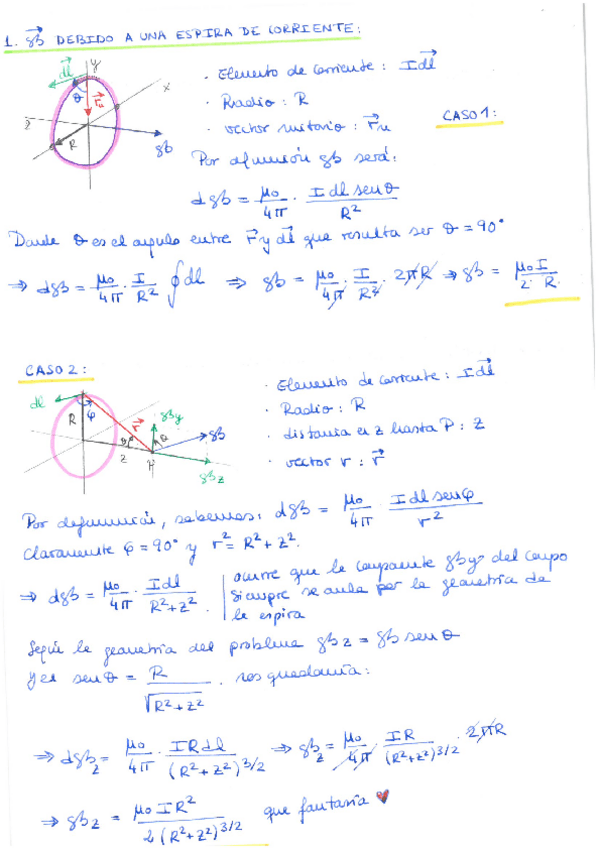 1. B⃗ DEBIDO A UNA ESPIRA DE CORRIENTE:
dl⃗ y x
θ r⃗u
z R B
· Elemento de corriente: I dl⃗
· Radio: R
· vector unitario: r⃗u
CASO 1:
Por definición B será:
dB = μ0/4π · I dl senθ / R²
Donde θ es el angulo entre r⃗ y dl⃗ que resulta ser θ = 90°
⇒ dB = μ0/4π · I/R² ∮dl ⇒ B = μ0/4π · I/R² · 2πR ⇒ B = μ0 I / 2 · R
CASO 2:
· Elemento de corriente: I dl⃗
· Radio: R
· distancia en z hasta P: z
· vector r: r⃗
dl φ R r⃗ By B
z θ θ P Bz
Por definición, sabemos: dB = μ0/4π · I dl senφ / r²
Claramente φ = 90° y r² = R² + z².
⇒ dB = μ0/4π · I dl / R² + z².
ocurre que la componente By del campo
siempre se anula por la geometría de
la espira
Según la geometría del problema Bz = B senθ
y el senθ = R / √R² + z² . nos quedaría:
⇒ dBz = μ0/4π · I R dl / (R² + z²)^3/2 ⇒ Bz = μ0/4π · I R / (R² + z²)^3/2 · 2πR
⇒ Bz = μ0 I R² / 2 (R² + z²)^3/2 que fantasía ♥